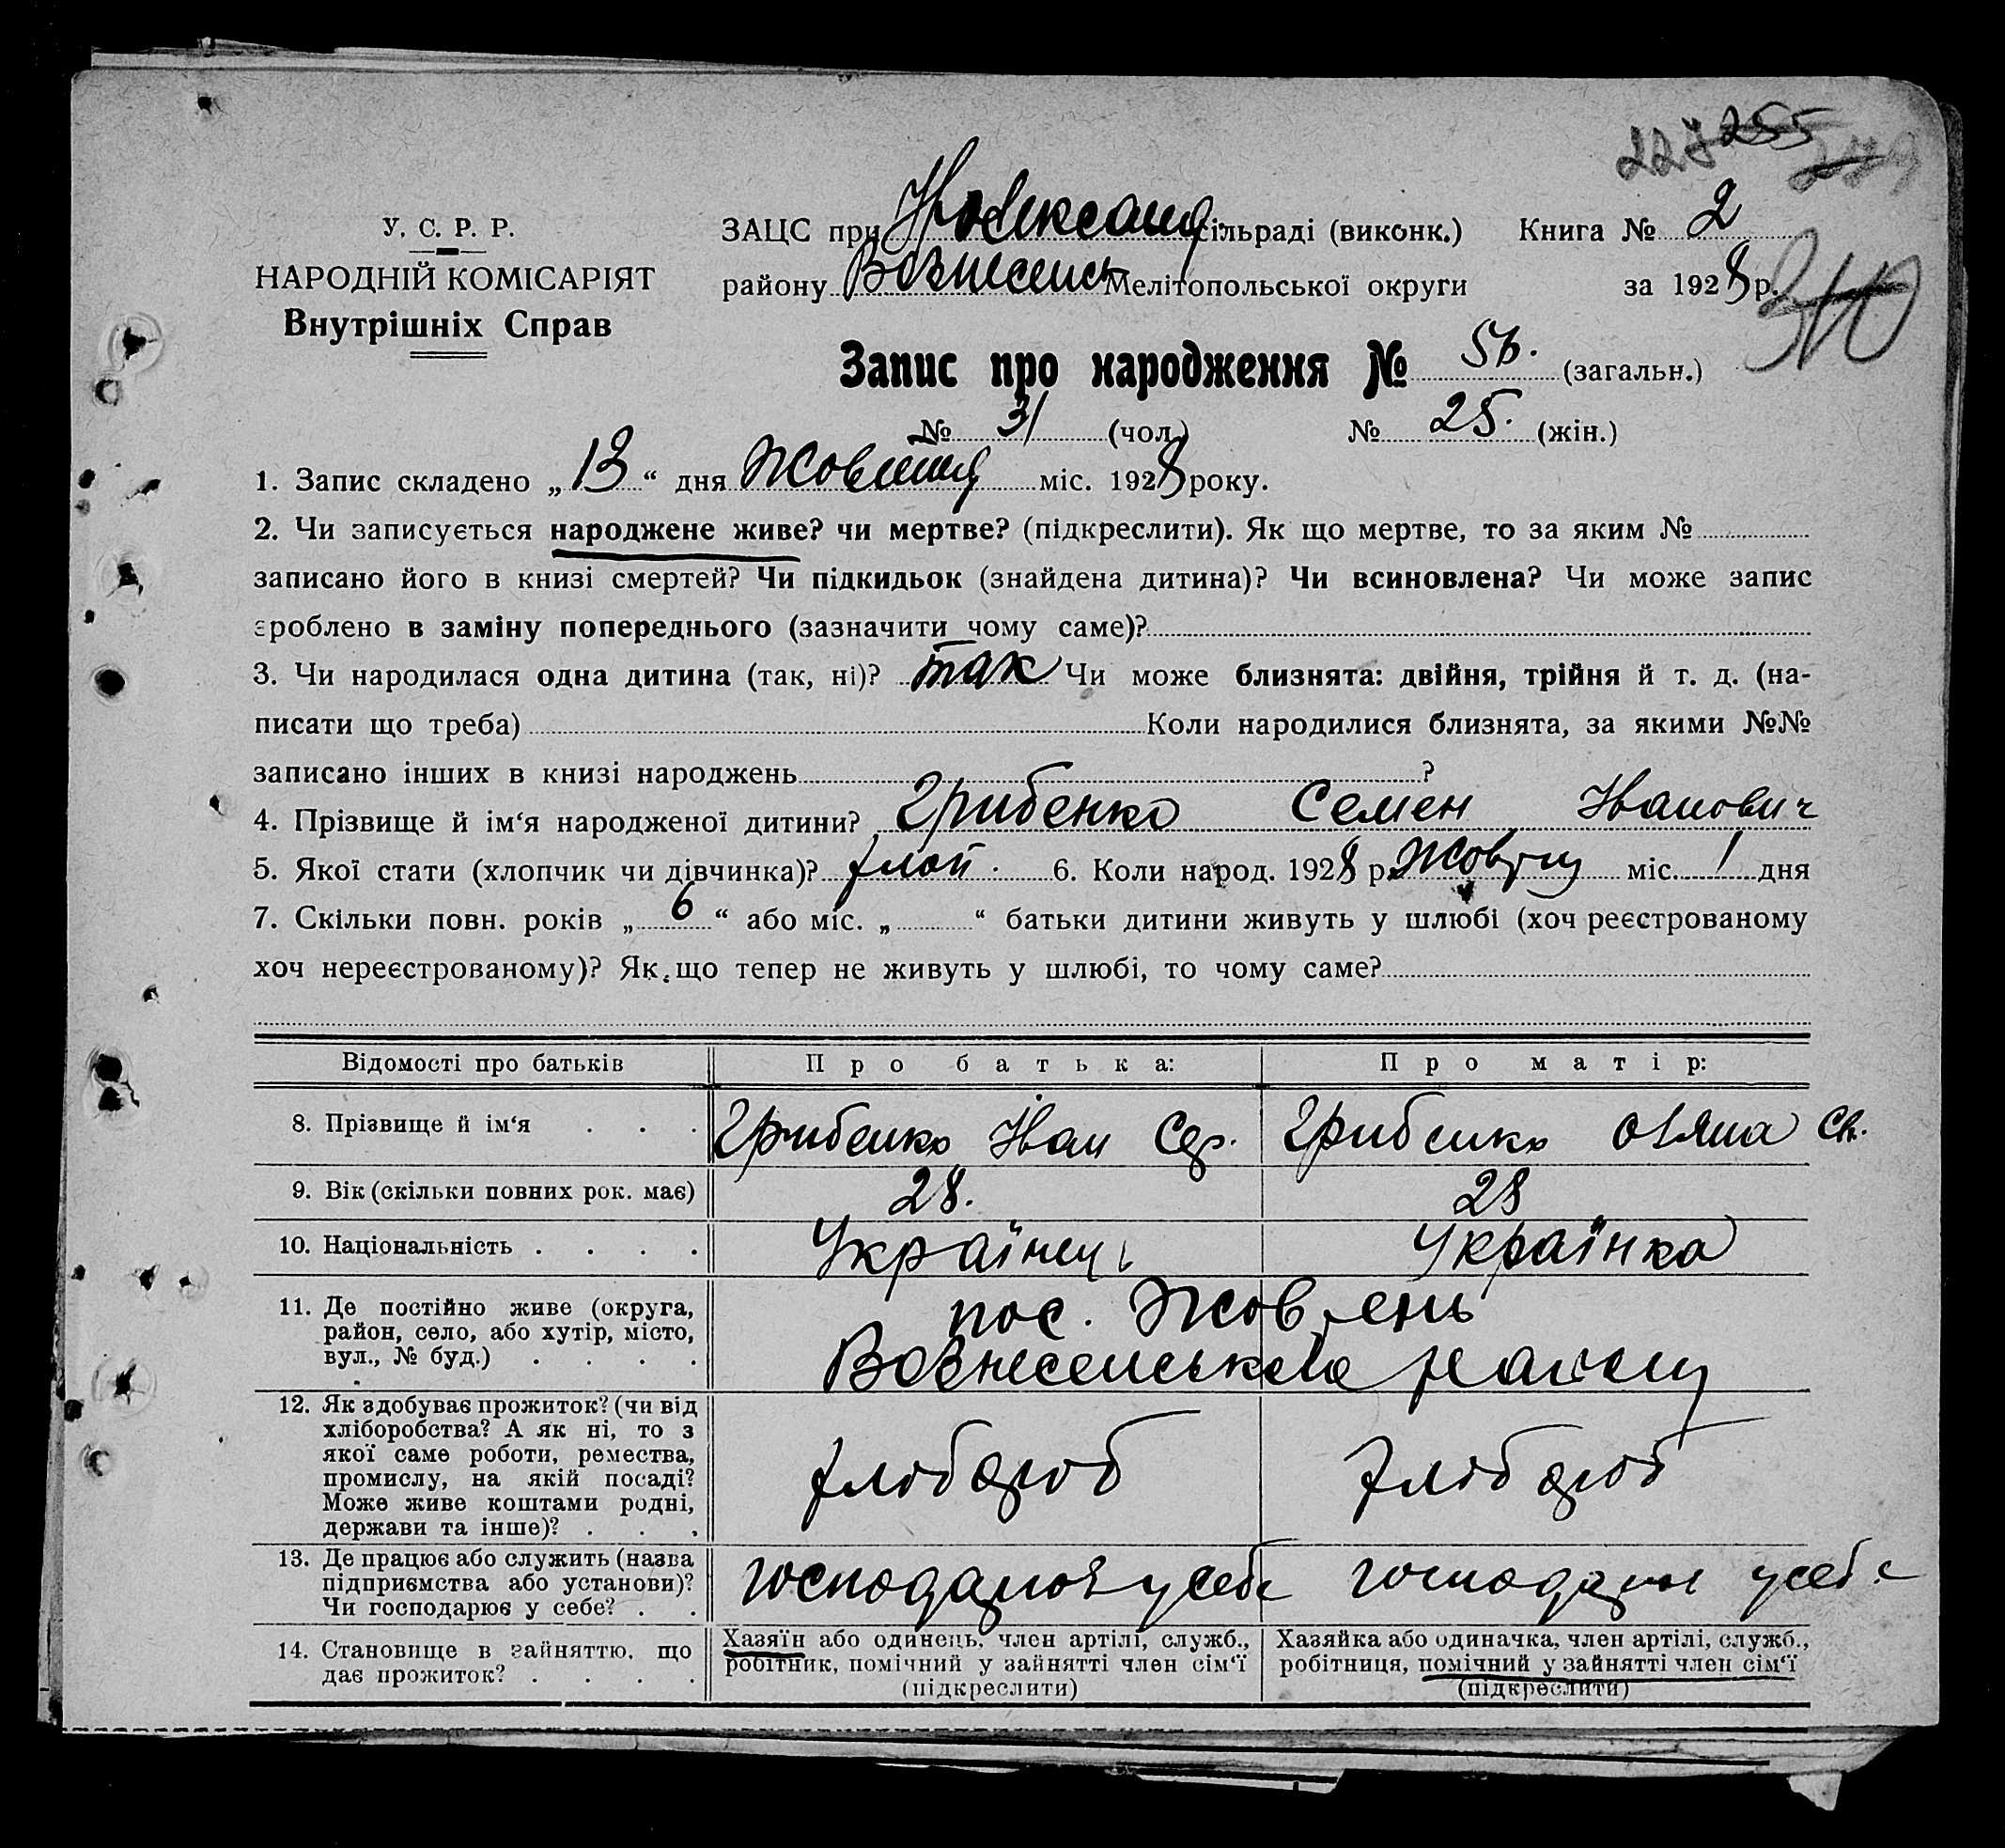 227 255 279
У. С. Р. Р.
НАРОДНІЙ КОМІСАРІЯТ
Внутрішніх Справ
ЗАЦС при сільраді (виконк.) Книга № 2
району Вознесенсь Мелітопольської округи за 1928 р.
310
Запис про народження № 56. (загальн.)
№ 31 (чол.) № 25. (жін.)
1. Запис складено „13“ дня Жовтня міс. 1928 року.
2. Чи записується народжене живе? чи мертве? (підкреслити). Як що мертве, то за яким №
записано його в книзі смертей? Чи підкидьок (знайдена дитина)? Чи всиновлена? Чи може запис
зроблено в заміну попереднього (зазначити чому саме)?
3. Чи народилася одна дитина (так, ні)? так Чи може близнята: двійня, трійня й т. д. (на-
писати що треба) Коли народилися близнята, за якими №№
записано інших в книзі народжень ?
4. Прізвище й ім‘я народженої дитини? Грибенко Семен Іванович
5. Якої стати (хлопчик чи дівчинка)? хлоп. 6. Коли народ. 1928 р. Жовтня міс. 1 дня
7. Скільки повн. років „6“ або міс. „ “ батьки дитини живуть у шлюбі (хоч реєстрованому
хоч нереєстрованому)? Як що тепер не живуть у шлюбі, то чому саме?
Відомості про батьків Про батька: Про матір:
8. Прізвище й ім‘я . . . Грибенко Іван Грибенко
9. Вік (скільки повних рок. має) 28. 28
10. Національність . . . . Українець Українка
11. Де постійно живе (округа,
район, село, або хутір, місто,
вул., № буд.) . . . .
пос. Жовтень
Вознесенського району
12. Як здобуває прожиток? (чи від
хліборобства? А як ні, то з
якої саме роботи, ремества,
промислу, на якій посаді?
Може живе коштами родні,
держави та інше)? . . .
хлібороб хлібороб
13. Де працює або служить (назва
підприємства або установи)?
Чи господарює у себе? . .
господарює у себе господарює у себе
14. Становище в зайняттю, що
дає прожиток? . . . .
Хазяїн або одинець, член артілі, служб.,
робітник, помічний у зайнятті член сім‘ї
(підкреслити)
Хазяйка або одиначка, член артілі, служб.,
робітниця, помічний у зайнятті член сім‘ї
(підкреслити)